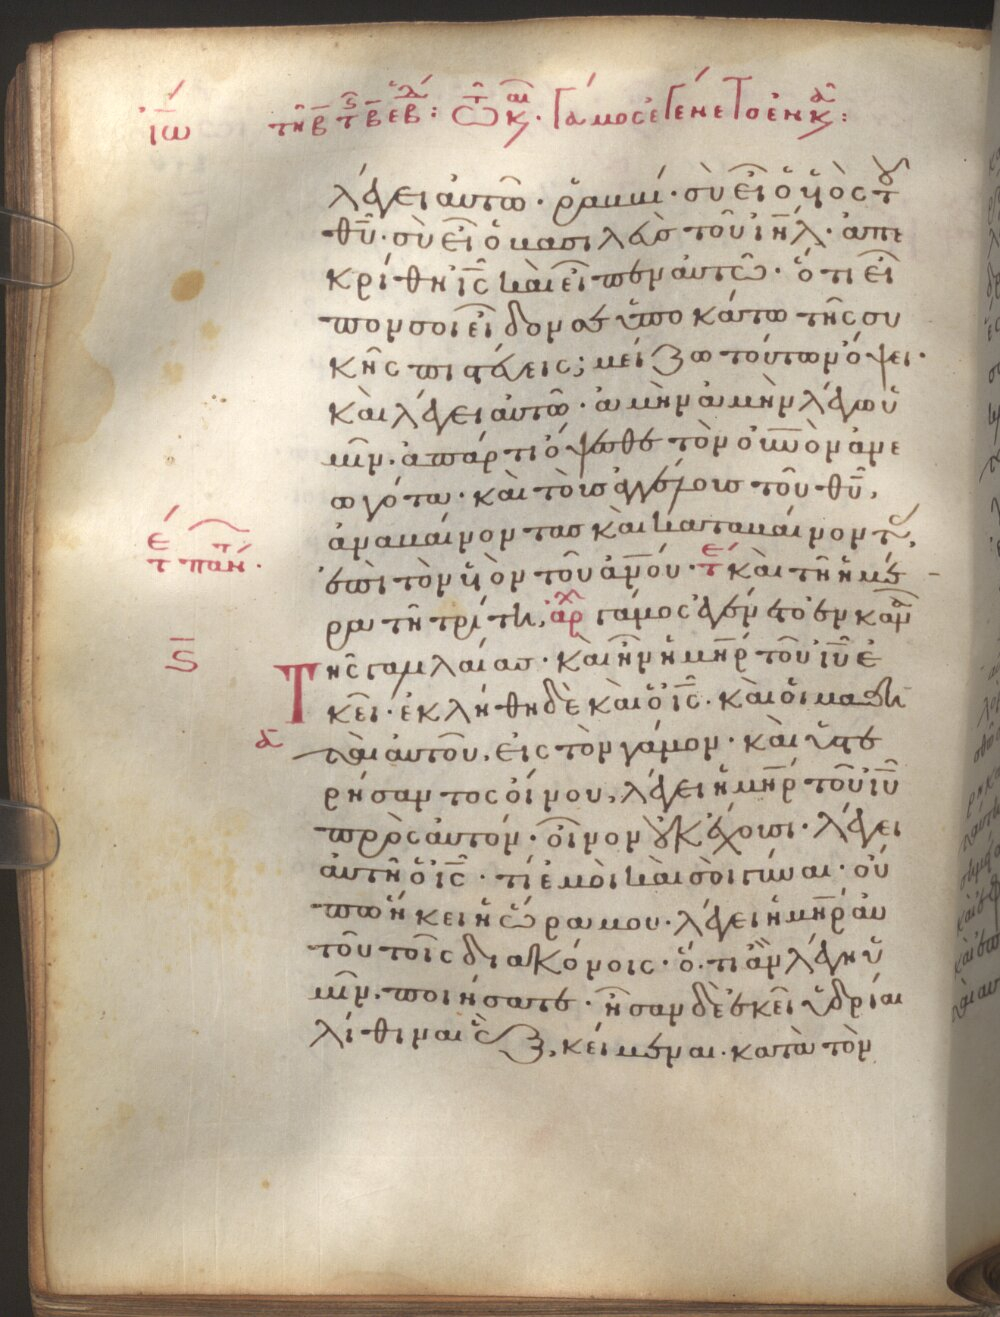 ἰω τῆ β τῆς β ἑβδ: τῶ κ· Γάμος ἐγένετο ἐν κα:
λέγει αὐτῶ· ῥαββί· σὺ εἶ ὁ ὑὸς τοῦ
θῦ· σὺ εἶ ὁ βασιλεὺς τοῦ ιηλ· ἀπε
κρίθη ις καὶ εἶπεν αὐτῶ· ὅτι εἶ
πον σοι εἶδον σε ὑποκάτω τῆς συ
κῆς πιστεύεις; μείζω τούτων ὄψει·
καὶ λέγει αὐτῶ· ἀμὴν ἀμὴν λέγω ὑ
μῖν· ἀπάρτι ὄψεσθε τὸν οὐνὸν ἀνε
ωγότα· καὶ τοὺς ἀγγέλους τοῦ θῦ,
ἀναβαίνοντας καὶ καταβαίνοντας,
ἐπὶ τὸν ὑὸν τοῦ ἀνου· τε καὶ τῆ ἡμέ
τε παν·
ρα τῆ τρίτη, ἀρχ γάμος ἐγένετο ἐν κανᾶ
ς
τῆς γαλιλαίας· καὶ ἦν ἡ μηρ τοῦ ιυ ἐ
κεῖ· ἐκλήθη δὲ καὶ ὁ ις· καὶ οἱ μαθη
α
ταὶ αὐτοῦ, εἰς τὸν γάμον· καὶ ὑστε
ρήσαντος οἴνου, λέγει ἡ μηρ τοῦ ιυ
πρὸς αὐτόν· οἶνον οὐκ ἔχουσι· λέγει
αὐτῆ ὁ ις· τί ἐμοὶ καὶ σοὶ γύναι· οὔ
πω ἥκει ἡ ὥρα μου· λέγει ἡ μηρ αὐ
τοῦ τοῖς διακόνοις· ὅ·τι ἂν λέγη ὑ
μῖν· ποιήσατε· ἦσαν δὲ ἐκεῖ ὑδρίαι
λίθιναι ἓξ, κείμεναι· κατὰ τὸν